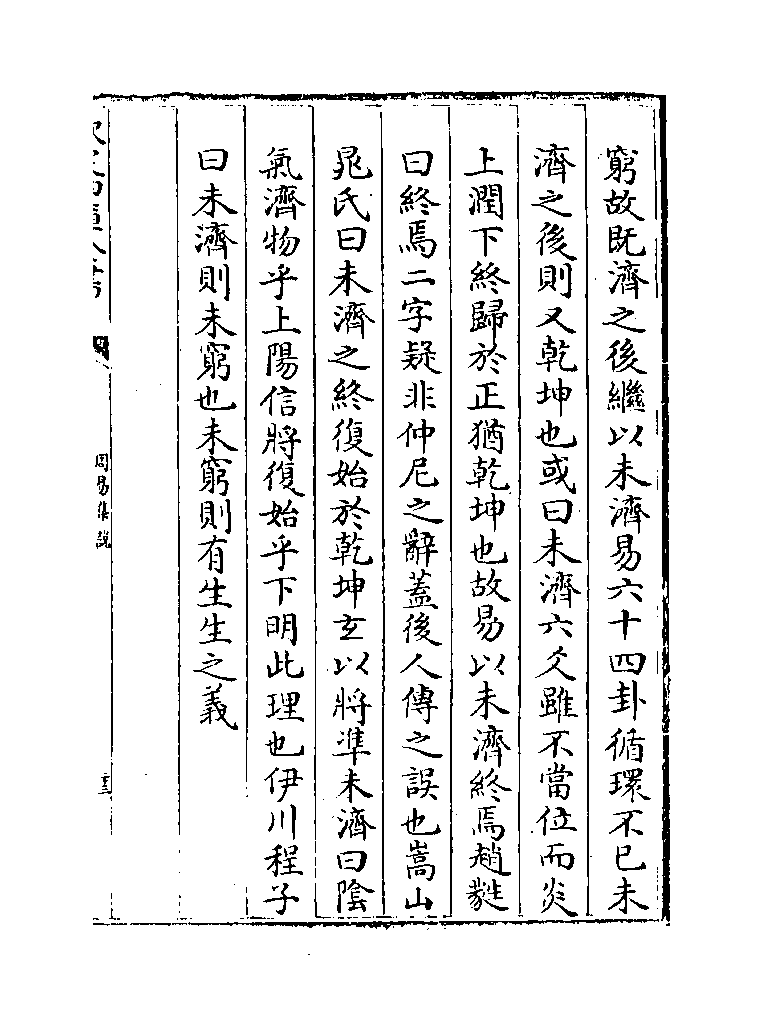 窮故既濟之後繼以未濟易六十四卦循環不已未
濟之後則又乾坤也或曰未濟六爻雖不當位而炎
上潤下終歸於正猶乾坤也故易以未濟終焉趙蕤
曰終焉二字疑非仲尼之辭蓋後人傳之誤也嵩山
晁氏曰未濟之終復始於乾坤玄以將準未濟曰陰
氣濟物乎上陽信將復始乎下明此理也伊川程子
曰未濟則未窮也未窮則有生生之義
周易集說